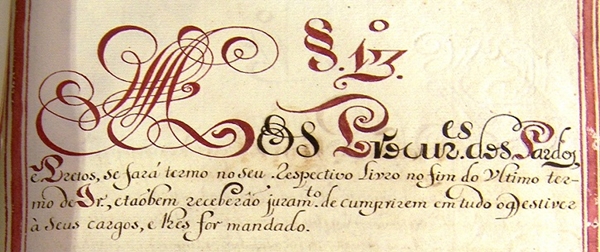 §. 13.º
Aos Procur.es dos Pardos,
e Pretos, se fará termo no seu Respectivo Livro no fim do Ultimo ter-
mo de Ir.', e taõbem receberão juram.to de cumprirem em tudo o q̃ estiver
à Seus cargos, e lhes for mandado.